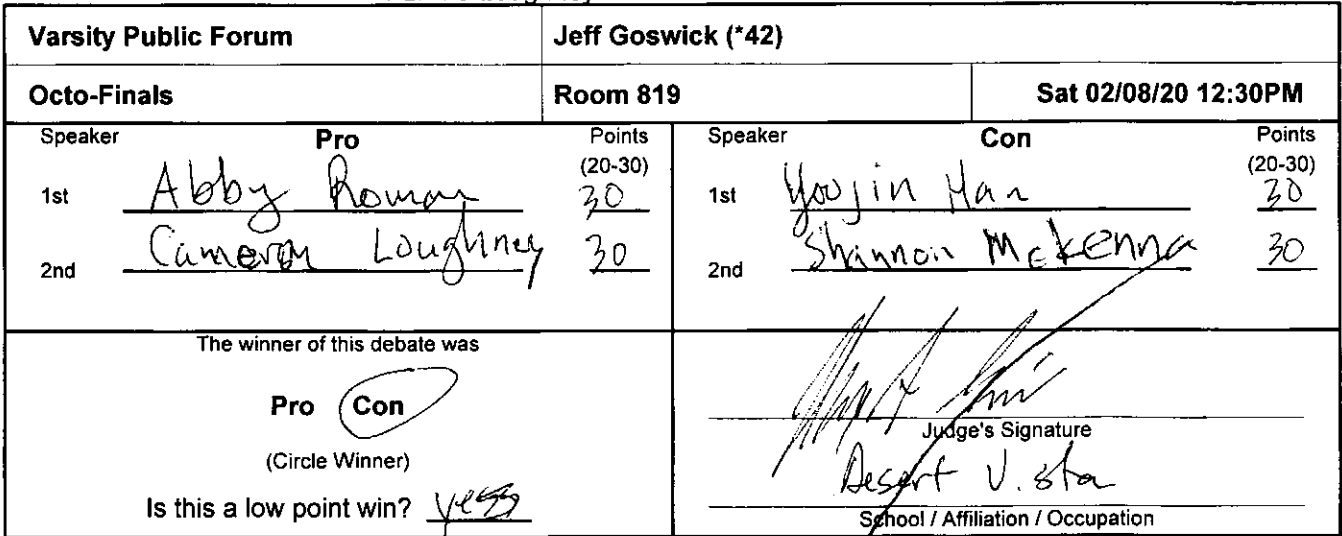 Varsity Public Forum Jeff Goswick (*42)
Octo-Finals Room 819 Sat 02/08/20 12:30PM
Speaker Pro Points
(20-30)
1st Abby Roman 30
2nd Cameron Loughney 30
Speaker Con Points
(20-30)
1st Yoojin Han 30
2nd Shannon McKenna 30
The winner of this debate was
Pro Con
(Circle Winner)
Is this a low point win? yes
Judge's Signature
Desert Vista
School / Affiliation / Occupation